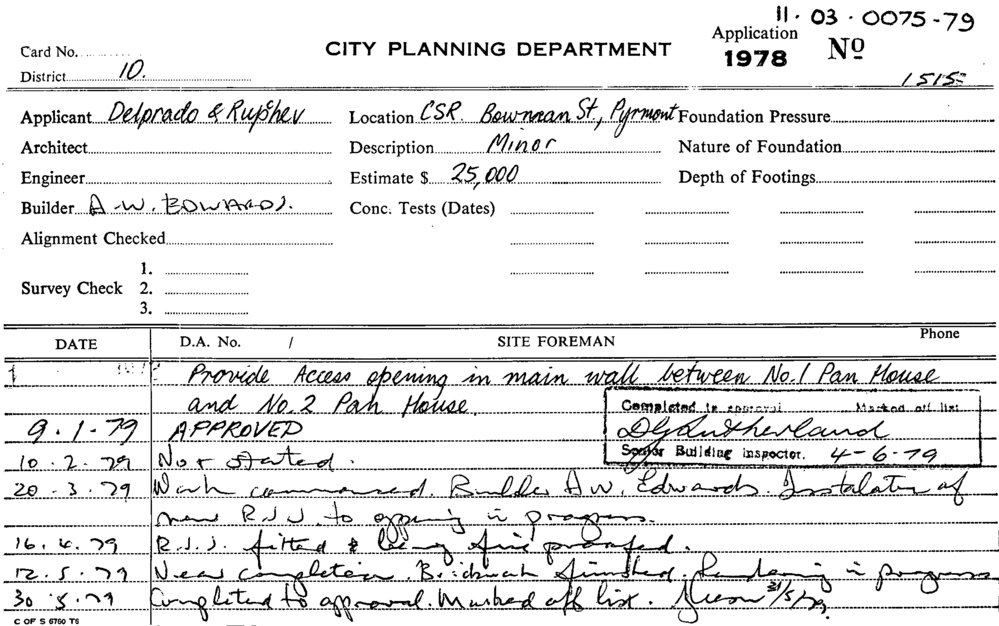 11. 03. 0075-79
Card No.
CITY PLANNING DEPARTMENT
Application
1978 No
District 10.
1515
Applicant Delprado & Location CSR. Bowman St., Pyrmont Foundation Pressure
Architect Description Minor Nature of Foundation
Engineer Estimate $ 25,000 Depth of Footings
Builder A.W. EDWARDS. Conc. Tests (Dates)
Alignment Checked
1.
Survey Check 2.
3.
DATE D.A. No. / SITE FOREMAN Phone
Provide Access opening in main wall between No.1 Pan House
and No.2 Pan House.
Completed to approval Marked off list
9.1.79 APPROVED
D G Sutherland
Senior Building Inspector. 4-6-79
10.2.79 Not started.
20.3.79 Work commenced. Builder A.W. Edwards. Instalation of
new R.S.J. to opening in progress.
16.4.79 R.S.J. fitted & being fire proofed.
12.5.79 Near completion. Brickwork finished. Rendering in progress
30.5.79 Completed to approval. Marked off list. 31/5/79.
C OF S 6760 T6